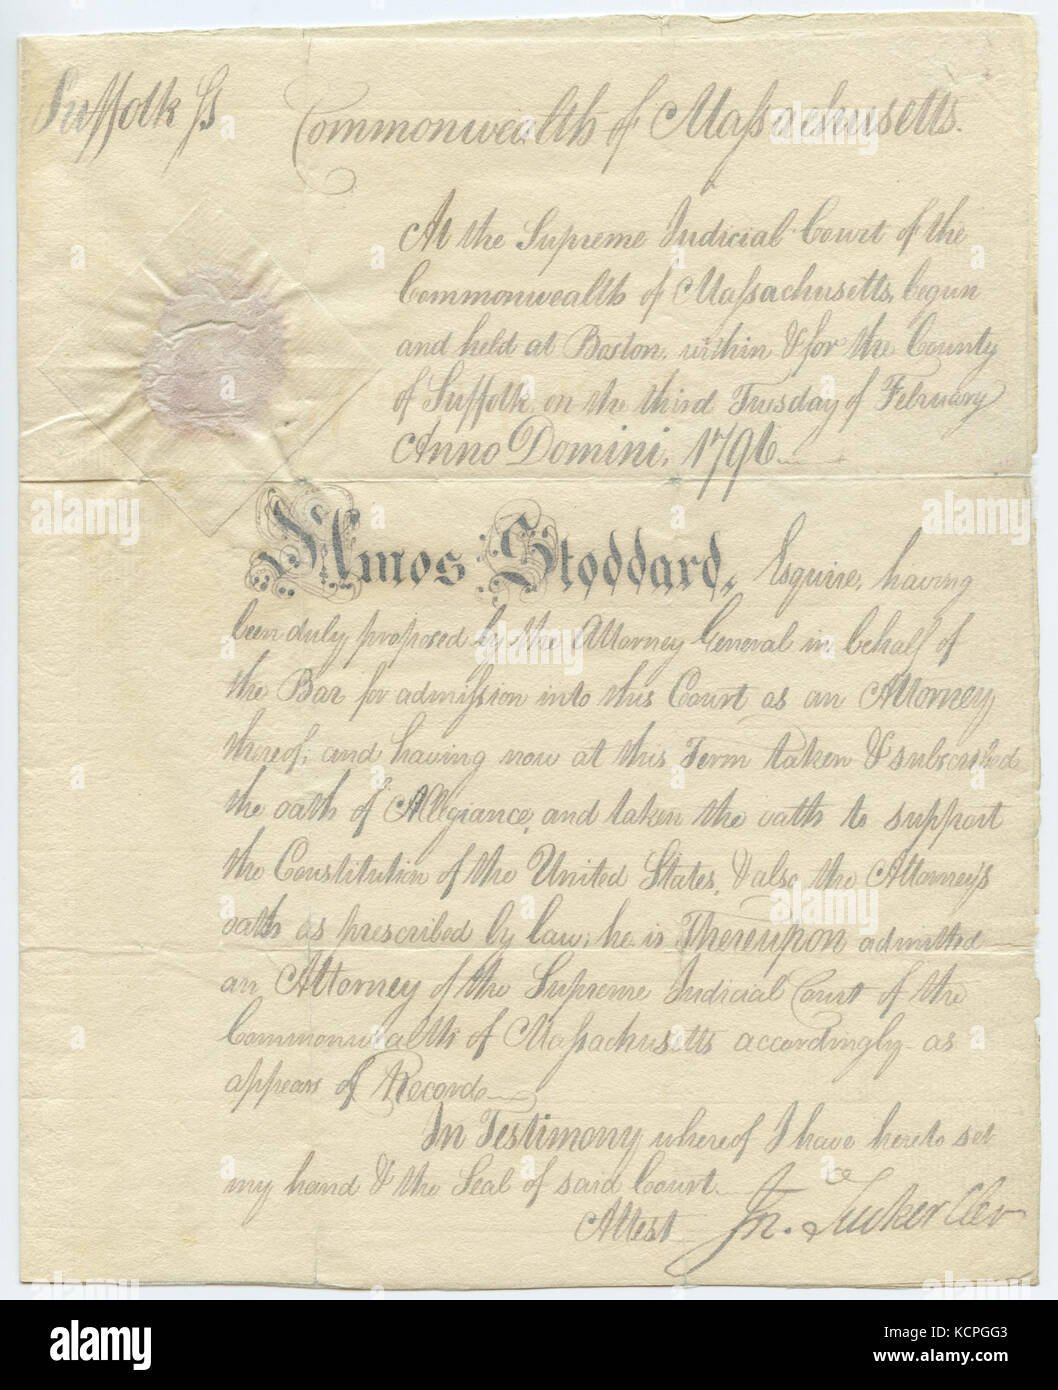 Suffolk ſs
Commonwealth of Maſsachusetts.
At the Supreme Judicial Court of the
Commonwealth of Maſsachusetts, begun
and held at Boston, within & for the County
of Suffolk, on the third Tuesday of February
Anno Domini, 1796
Amos Stoddard, Esquire, having
been duly proposed by the Attorney General in behalf of
the Bar for admiſsion into this Court as an Attorney
thereof; and having now at this Term taken & subscribed
the oath of Allegiance, and taken the oath to support
the Constitution of the United States, & also the Attorney's
oath as prescribed by law; he is Thereupon admitted
an Attorney of the Supreme Judicial Court of the
Commonwealth of Maſsachusetts accordingly as
appears of Record
In Testimony whereof I have hereto set
my hand & the Seal of said Court.
Attest Jn. Tucker Cler
alamy
Image ID: KCPGG3
www.alamy.com